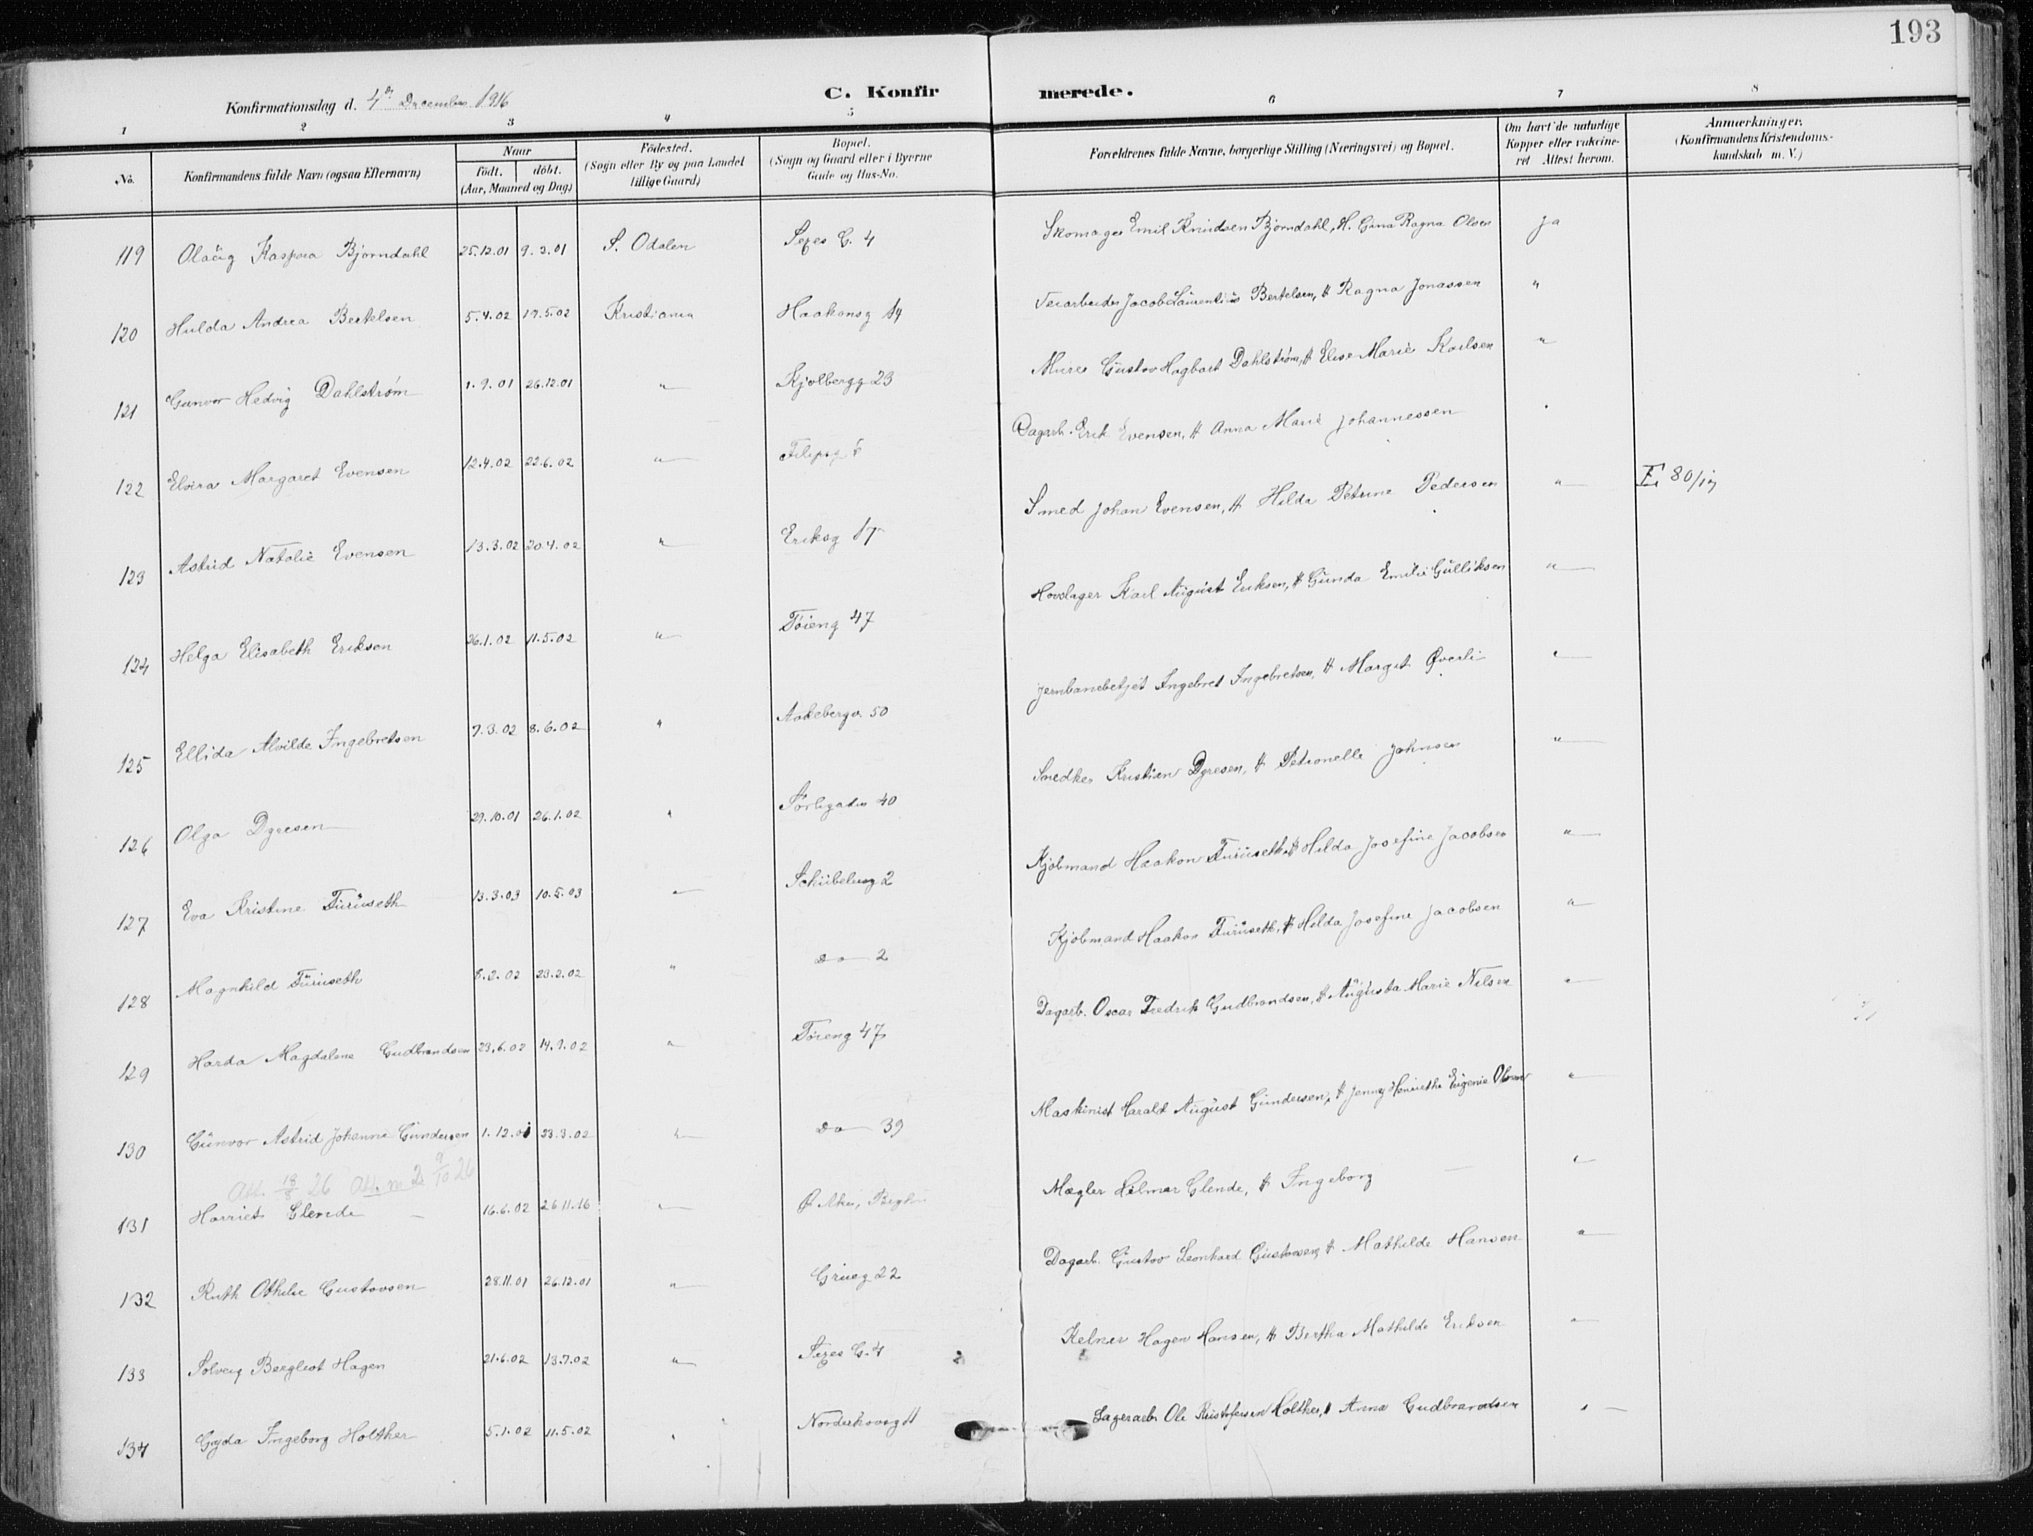 193
Konfirmationsdag d. 4de December 1916
C. Konfirmerede.
1 2 3 4 5 6 7 8
No. Konfirmandens fulde Navn (ogsaa Efternavn) Naar født. døbt. (Aar, Maaned og Dag) Fødested. (Sogn eller By og paa Landet tillige Gaard) Bopæl. (Sogn og Gaard eller i Byerne Gade og Hus-No. Forældrenes fulde Navne, borgerlige Stilling (Næringsvei) og Bopæl. Om havt de naturlige Kopper eller vakcineret Attest herom. Anmerkninger. (Konfirmandens Kristendomskundskab m. V.)
119 Olaüg Kaspara Bjørndahl 25.12.01 9.3.01 S. Odalen G. 4 Skomager Emil Knudsen Bjørndahl, H. Gina Ragna Olsen Ja
120 Hulda Andrea Bertelsen 5.4.02 19.5.02 Kristiania Haakonsg 14 Veiarbeider Jacob Laurentius Bertelsen, H Ragna Jonassen "
121 Gunvor Hedvig Dahlstrøm 1.9.01 26.12.01 " Kjølbergg 23 Murer Gustav Hagbart Dahlstrøm, H Elise Marie Karlsen "
122 Elvira Margaret Evensen 12.4.02 22.6.02 " Filipsg Dagarb. Erik Evensen, H Anna Marie Johannessen "
123 Astrid Natalie Evensen 13.3.02 20.4.02 " Eriksg 17 Smed Johan Evensen, H Hilda Petrine Pedersen " E. 80/17
124 Helga Elisabeth Eriksen 26.1.02 11.5.02 " Tøieng 47 Hovslager Karl August Eriksen, H Gunda Emilie Gulliksen "
125 Ellida Alvilde Ingebretsen 7.3.02 8.6.02 " Aakebergv. 50 Jernbanebetjet Ingebret Ingebretsen, H Margit Øverli "
126 Olga Dyresen 29.10.01 26.1.02 " Sørligaden 40 Snedker Kristian Dyresen, H Petronelle Johnsen "
127 Eva Kristine Furuseth 13.3.03 10.5.03 " Schübelersg 2 Kjøbmand Haakon Furuseth, H Hilda Josefine Jacobsen "
128 Magnhild Furuseth 8.2.02 23.2.02 " Do 2 Kjøbmand Haakon Furuseth, H Hilda Josefine Jacobsen "
129 Harda Magdalene Gudbrandsen 23.6.02 14.9.02 " Tøieng 47 Dagarb. Oscar Fredrik Gudbrandsen, H Augusta Marie Nilsen "
130 Gunvor Astrid Johanne Gundersen 1.12.01 23.3.02 " Do 39 Maskinist Harald August Gundersen, H Jenny Henriette Eugenie Olsen "
Att. 18/8 26 Att. m 2 9/10 26
131 Harriet Glende 16.6.02 26.11.16 " Ø. Aker, Mægler Hilmar Glende, H Ingeborg "
132 Ruth Othilie Gustavsen 28.11.01 26.12.01 " Grüeg 22 Dagarb. Gustav Leonhard Gustavsen, H Mathilde Hansen "
133 Solveig Bergliot Hagen 21.6.02 13.7.02 " G. 4 Kelner Hagen Hansen, H Bertha Mathilde Eriksen "
134 Gyda Ingeborg Holther 5.1.02 11.5.02 " Norderhovsg Lagerarb. Ole Kristofersen Holther, H Anna Gudbrandsen "